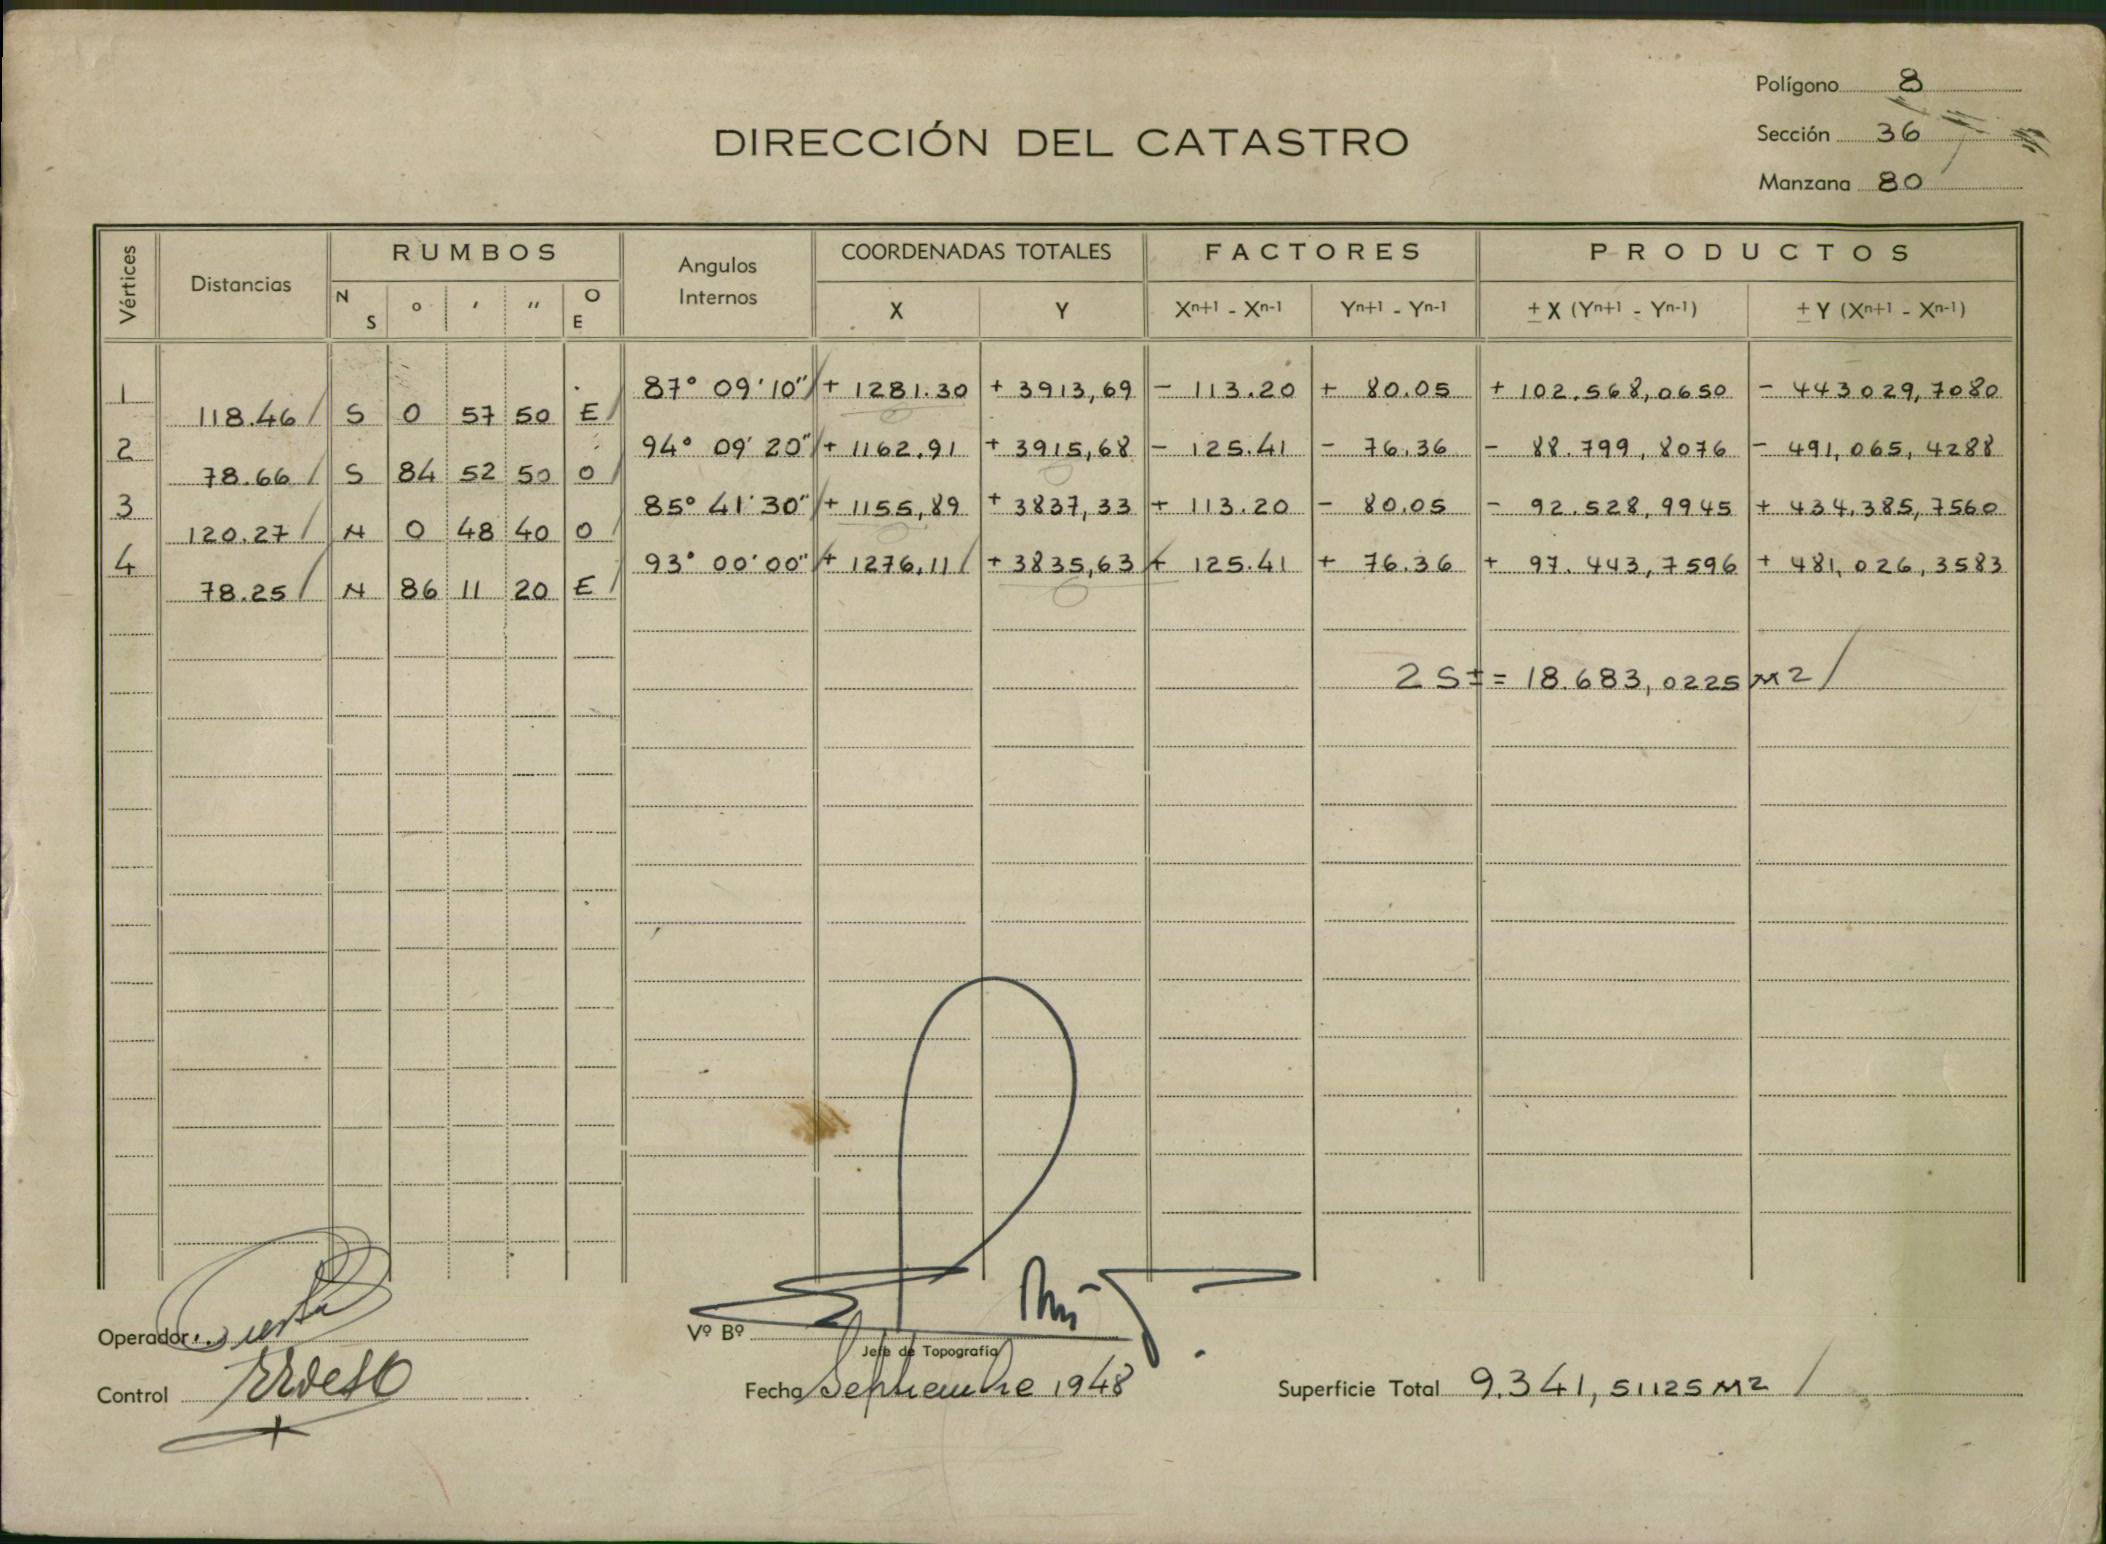 Polígono 8
DIRECCIÓN DEL CATASTRO
Sección 36
Manzana 80
Vértices Distancias RUMBOS Angulos Internos COORDENADAS TOTALES FACTORES PRODUCTOS
N S ° ′ ″ O E X Y Xn+1 - Xn-1 Yn+1 - Yn-1 ± X (Yn+1 - Yn-1) ± Y (Xn+1 - Xn-1)
1 87° 09' 10" + 1281.30 + 3913,69 - 113.20 + 80.05 + 102.568,0650 - 443029,7080
118.46 S 0 57 50 E
2 94° 09' 20" + 1162.91 + 3915,68 - 125.41 - 76.36 - 88.799,8076 - 491,065,4288
78.66 S 84 52 50 O
3 85° 41' 30" + 1155,89 + 3837,33 + 113.20 - 80.05 - 92.528,9945 + 434.385,7560
120.27 N 0 48 40 O
4 93° 00' 00" + 1276,11 + 3835,63 + 125.41 + 76.36 + 97.443,7596 + 481,026,3583
78.25 N 86 11 20 E
2 S ± = 18.683,0225 M2
Operador
Vº Bº
Jefe de Topografía
Control
Fecha Septiembre 1948
Superficie Total 9.341,51125 M2